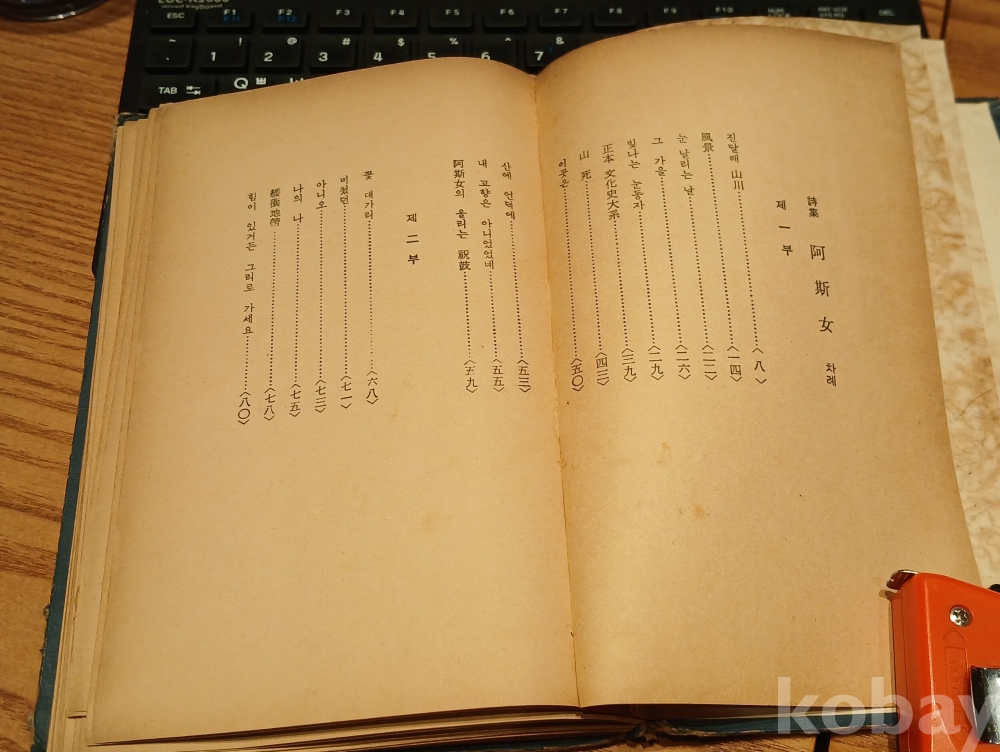 詩集 阿斯女 차례
제一부
진달래 山川……〈八〉
風景……〈一四〉
눈 날리는 날……〈二二〉
그 가을……〈二六〉
빛나는 눈동자……〈二九〉
正本 文化史大系……〈三九〉
山 死……〈四三〉
이곳은……〈五〇〉
산에 언덕에……〈五三〉
내 고향은 아니었었네……〈五五〉
阿斯女의 울리는 祝鼓……〈五九〉
제二부
꽃 대가리……〈六八〉
미쳤던……〈七一〉
아니오……〈七三〉
나의 나……〈七五〉
緩衝地帶……〈七八〉
힘이 있거든 그리로 가세요……〈八〇〉
ESC F1 F2 F3 F4 F5 F6 F7 F8
F11 F12
~ ! @ # $ % ^ &
1 2 3 4 5 6 7
TAB Q ㅃ W
kobay